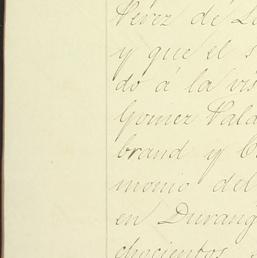 Pérez de L
y que el s
do á la vis
Gomez Vald
brand y C
monio del
en Durang
chocientos